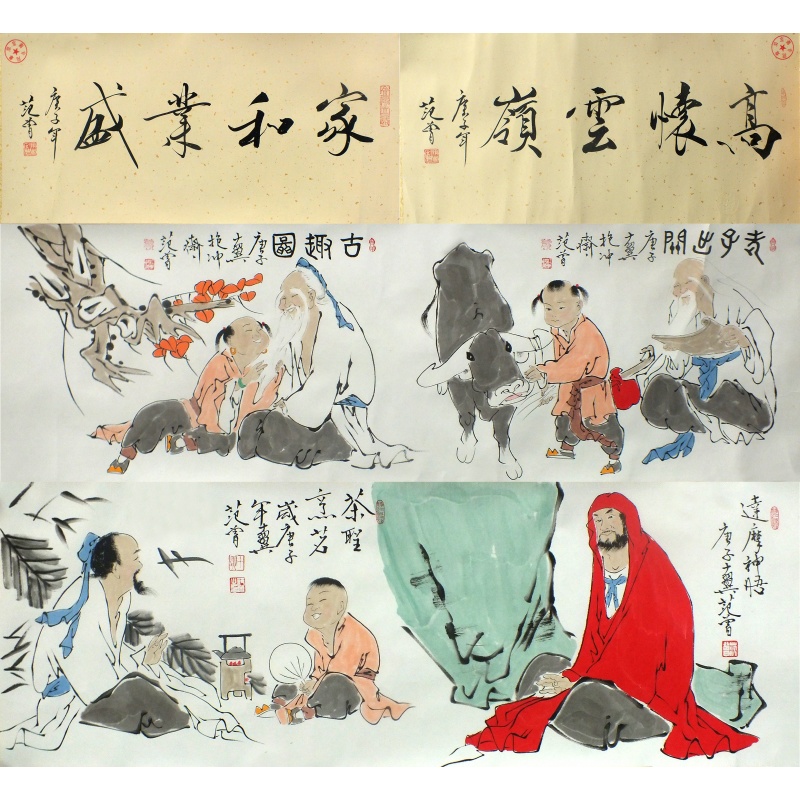 家和業盛
庚子年
范曾
高懷雲嶺
庚子年
范曾
古趣圖
庚子
十翼
抱冲
齋
范曾
老子出關
庚子
十翼
抱冲
齋
范曾
茶聖
烹茗
歲庚子
十翼
范曾
達摩神悟
庚子十翼范曾